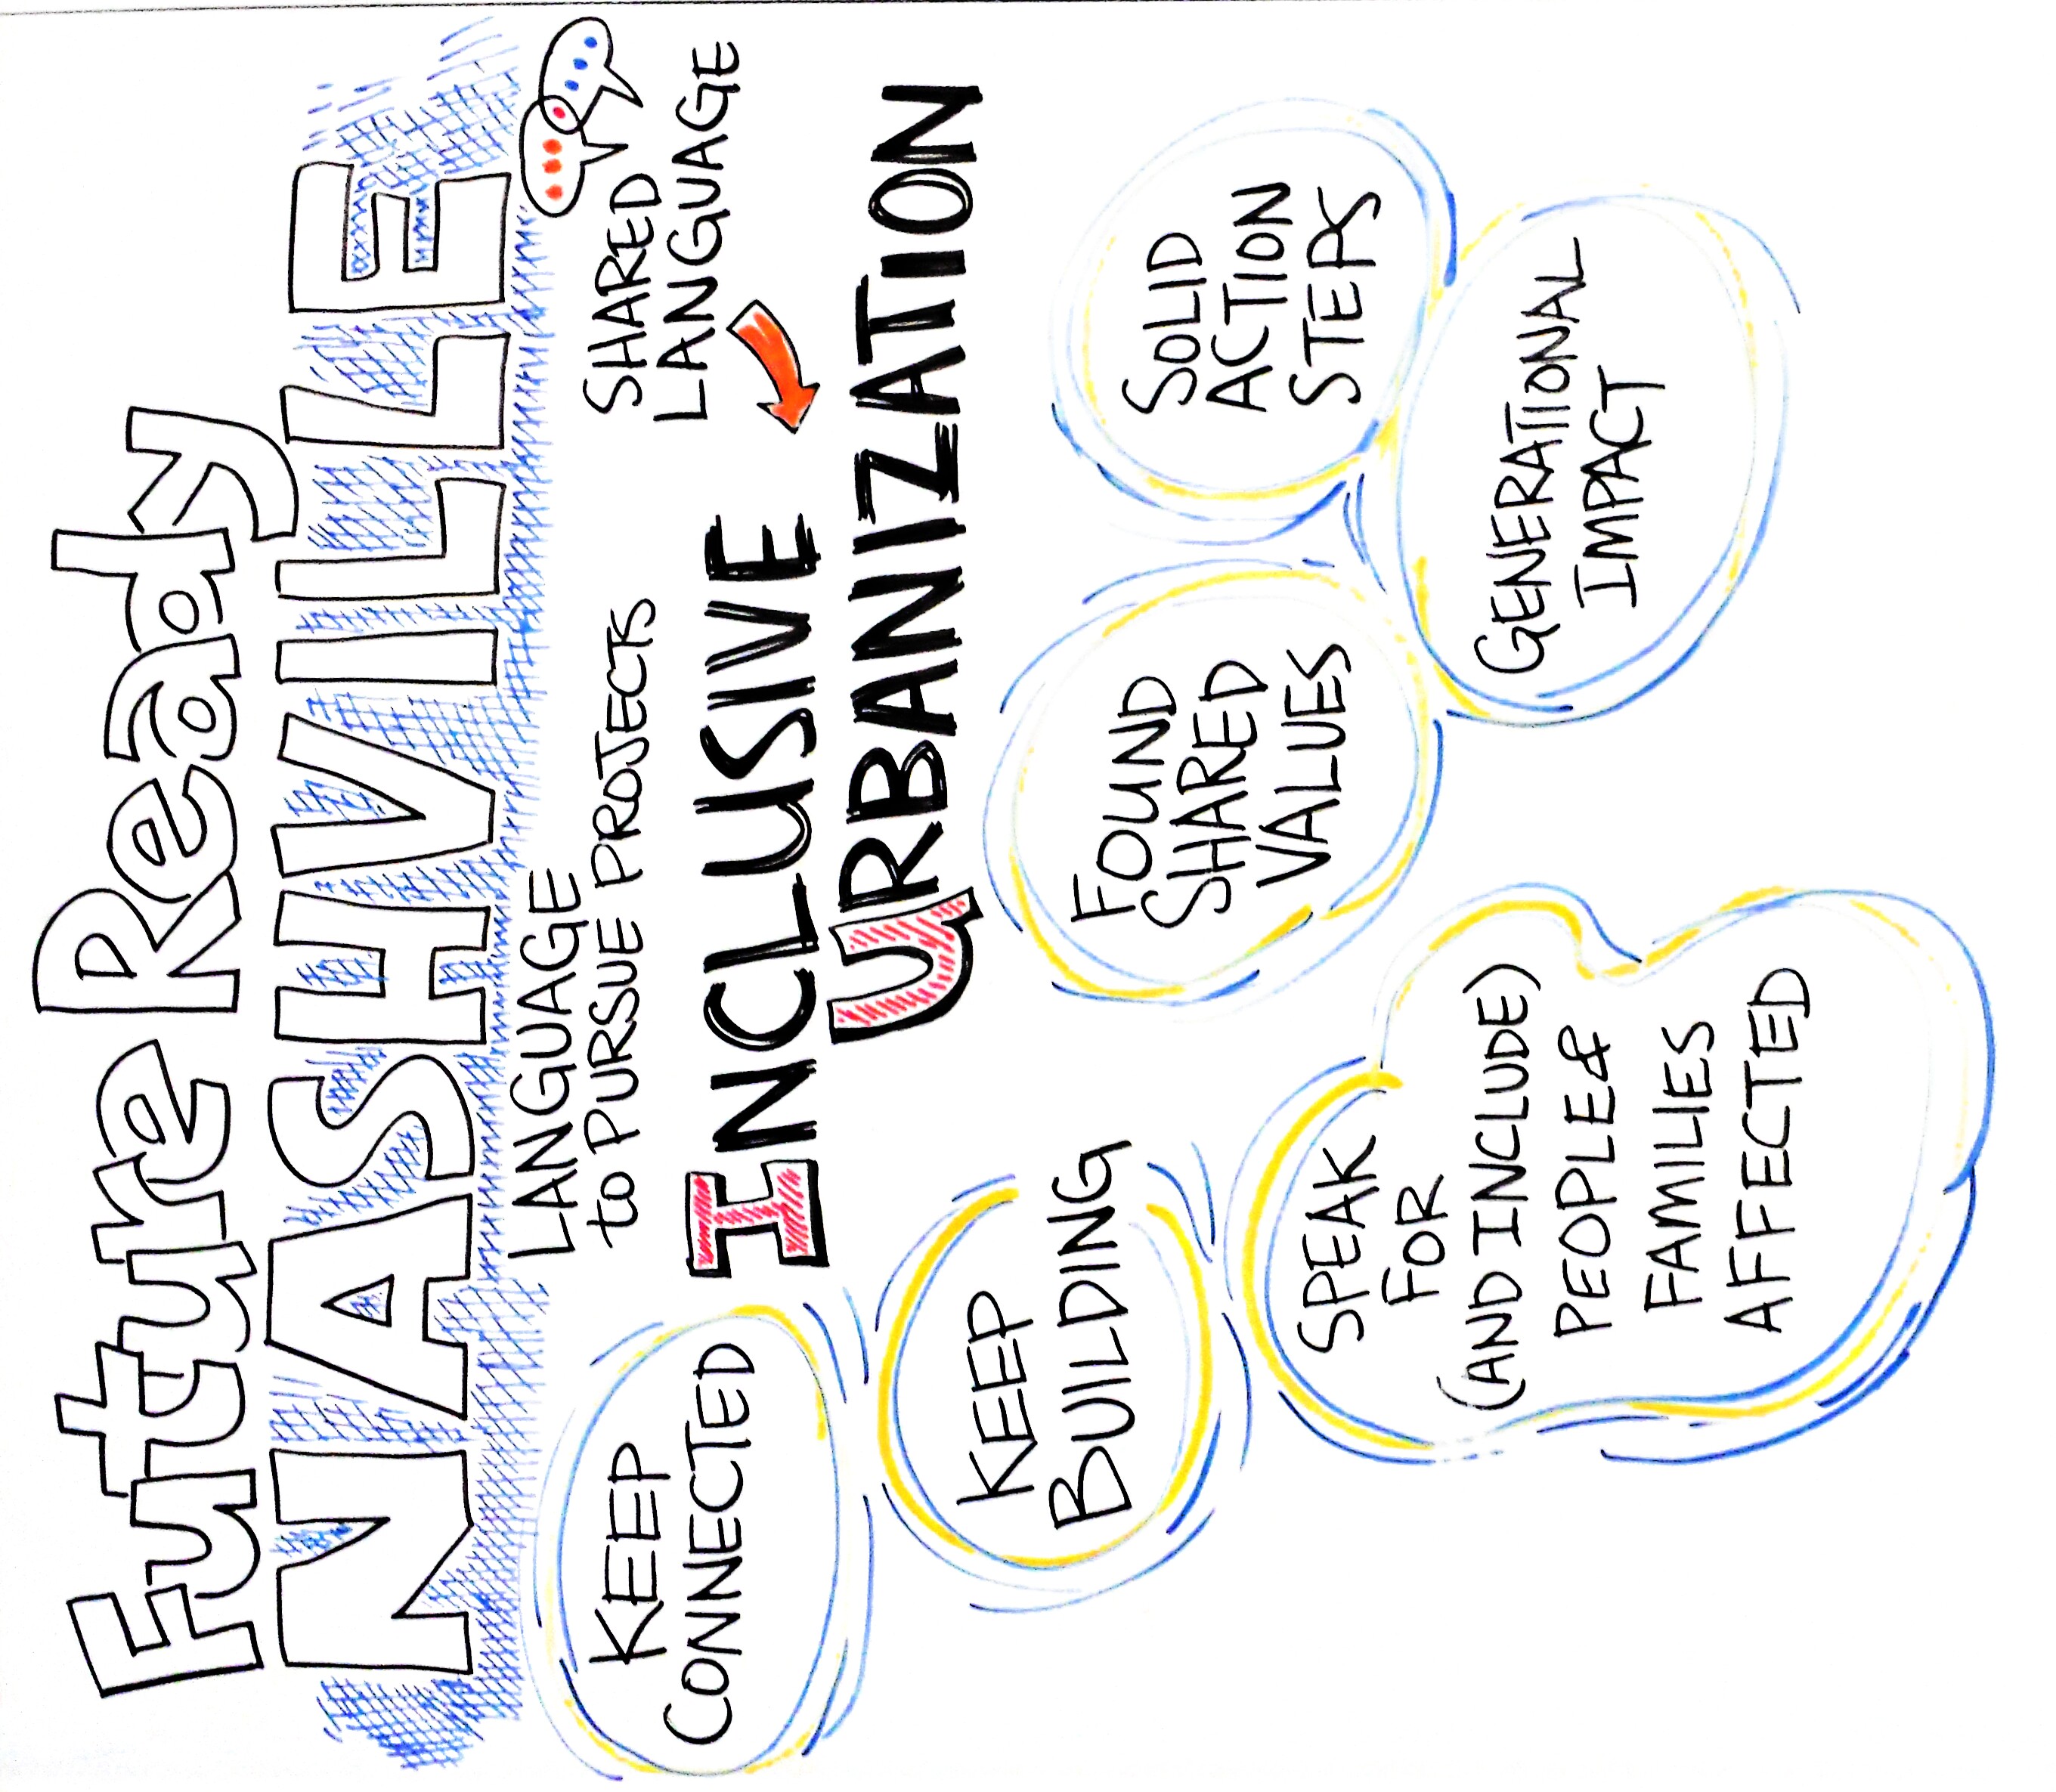 Future Ready
NASHVILLE
LANGUAGE
to PURSUE PROJECTS
SHARED
LANGUAGE
INCLUSIVE
URBANIZATION
KEEP
CONNECTED
KEEP
BUILDING
FOUND
SHARED
VALUES
SOLID
ACTION
STEPS
SPEAK
FOR
(AND INCLUDE)
PEOPLE &
FAMILIES
AFFECTED
GENERATIONAL
IMPACT